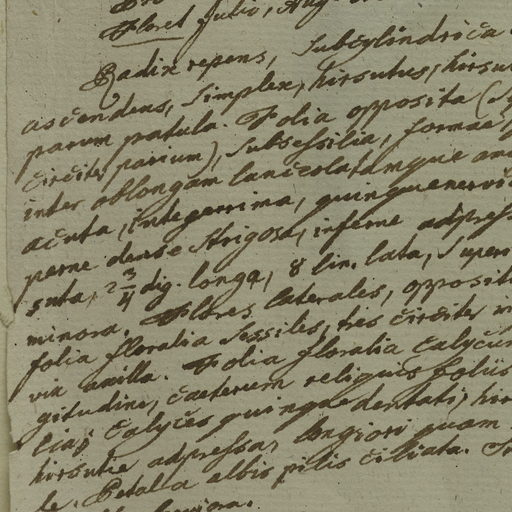 Floret Julio, Aug
Radix repens, Subcylindrica
ascendens, Simplex, hirsutus, hirsu
parum patula. Folia opposita (S
circiter parium), Subsessilia, formae
inter oblongam lanceolatamque
acuta, integerrima, quinquenervi
perne dense strigosa, inferne adpress
suta, 2 3/4 dig. longa, 8 lin. lata, Super
minora. Flores laterales, opposit
folia floralia Sessiles, tres circiter in
via axilla. Folia floralia Calycum
gitudine, caeterum reliquis foliis
lia; Calyces quinquedentati, hir
hirsutie adpressa, longiori quam
le. Petala albis pilis ciliata.